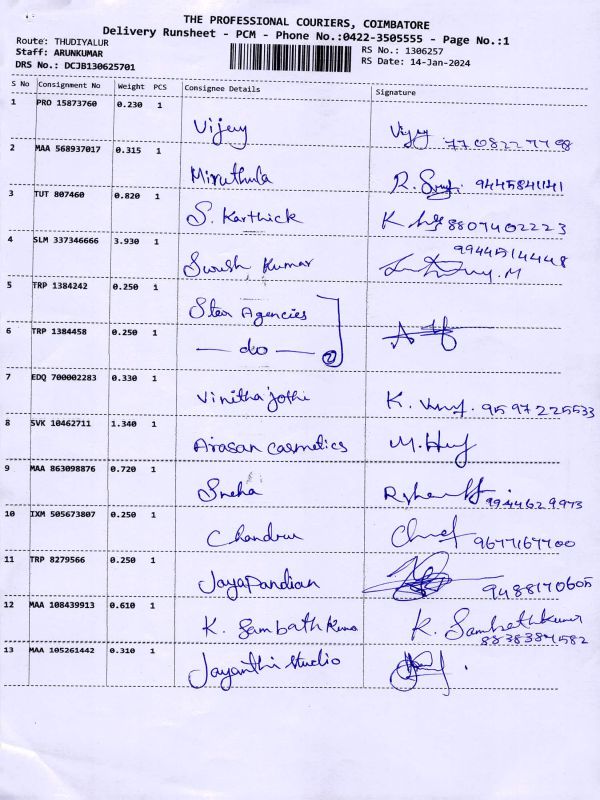 THE PROFESSIONAL COURIERS, COIMBATORE
Delivery Runsheet - PCM - Phone No.:0422-3505555 - Page No.:1
Route: THUDIYALUR
Staff: ARUNKUMAR
DRS No.: DCJB130625701
RS No.: 1306257
RS Date: 14-Jan-2024
S No Consignment No Weight PCS Consignee Details Signature
1 PRO 15873760 0.230 1 Vijay Vijay 7708227798
2 MAA 568937017 0.315 1 Miruthula 9445841141
3 TUT 807460 0.820 1 S. Karthick 8807402223
4 SLM 337346666 3.930 1 Suresh Kumar 9944514448
5 TRP 1384242 0.250 1 Star Agencies
6 TRP 1384458 0.250 1 — do — 2
7 EDQ 700002283 0.330 1 Vinitha jothi 9597225533
8 SVK 10462711 1.340 1 Arasan cosmetics
9 MAA 863098876 0.720 1 Sneha 9944629973
10 IXM 505673807 0.250 1 Chandru 9677167700
11 TRP 8279566 0.250 1 Jayapandian 9488170605
12 MAA 108439913 0.610 1 K. Sambath Kumar K. Sambathkumar
8838384582
13 MAA 105261442 0.310 1 Jayanthi studio